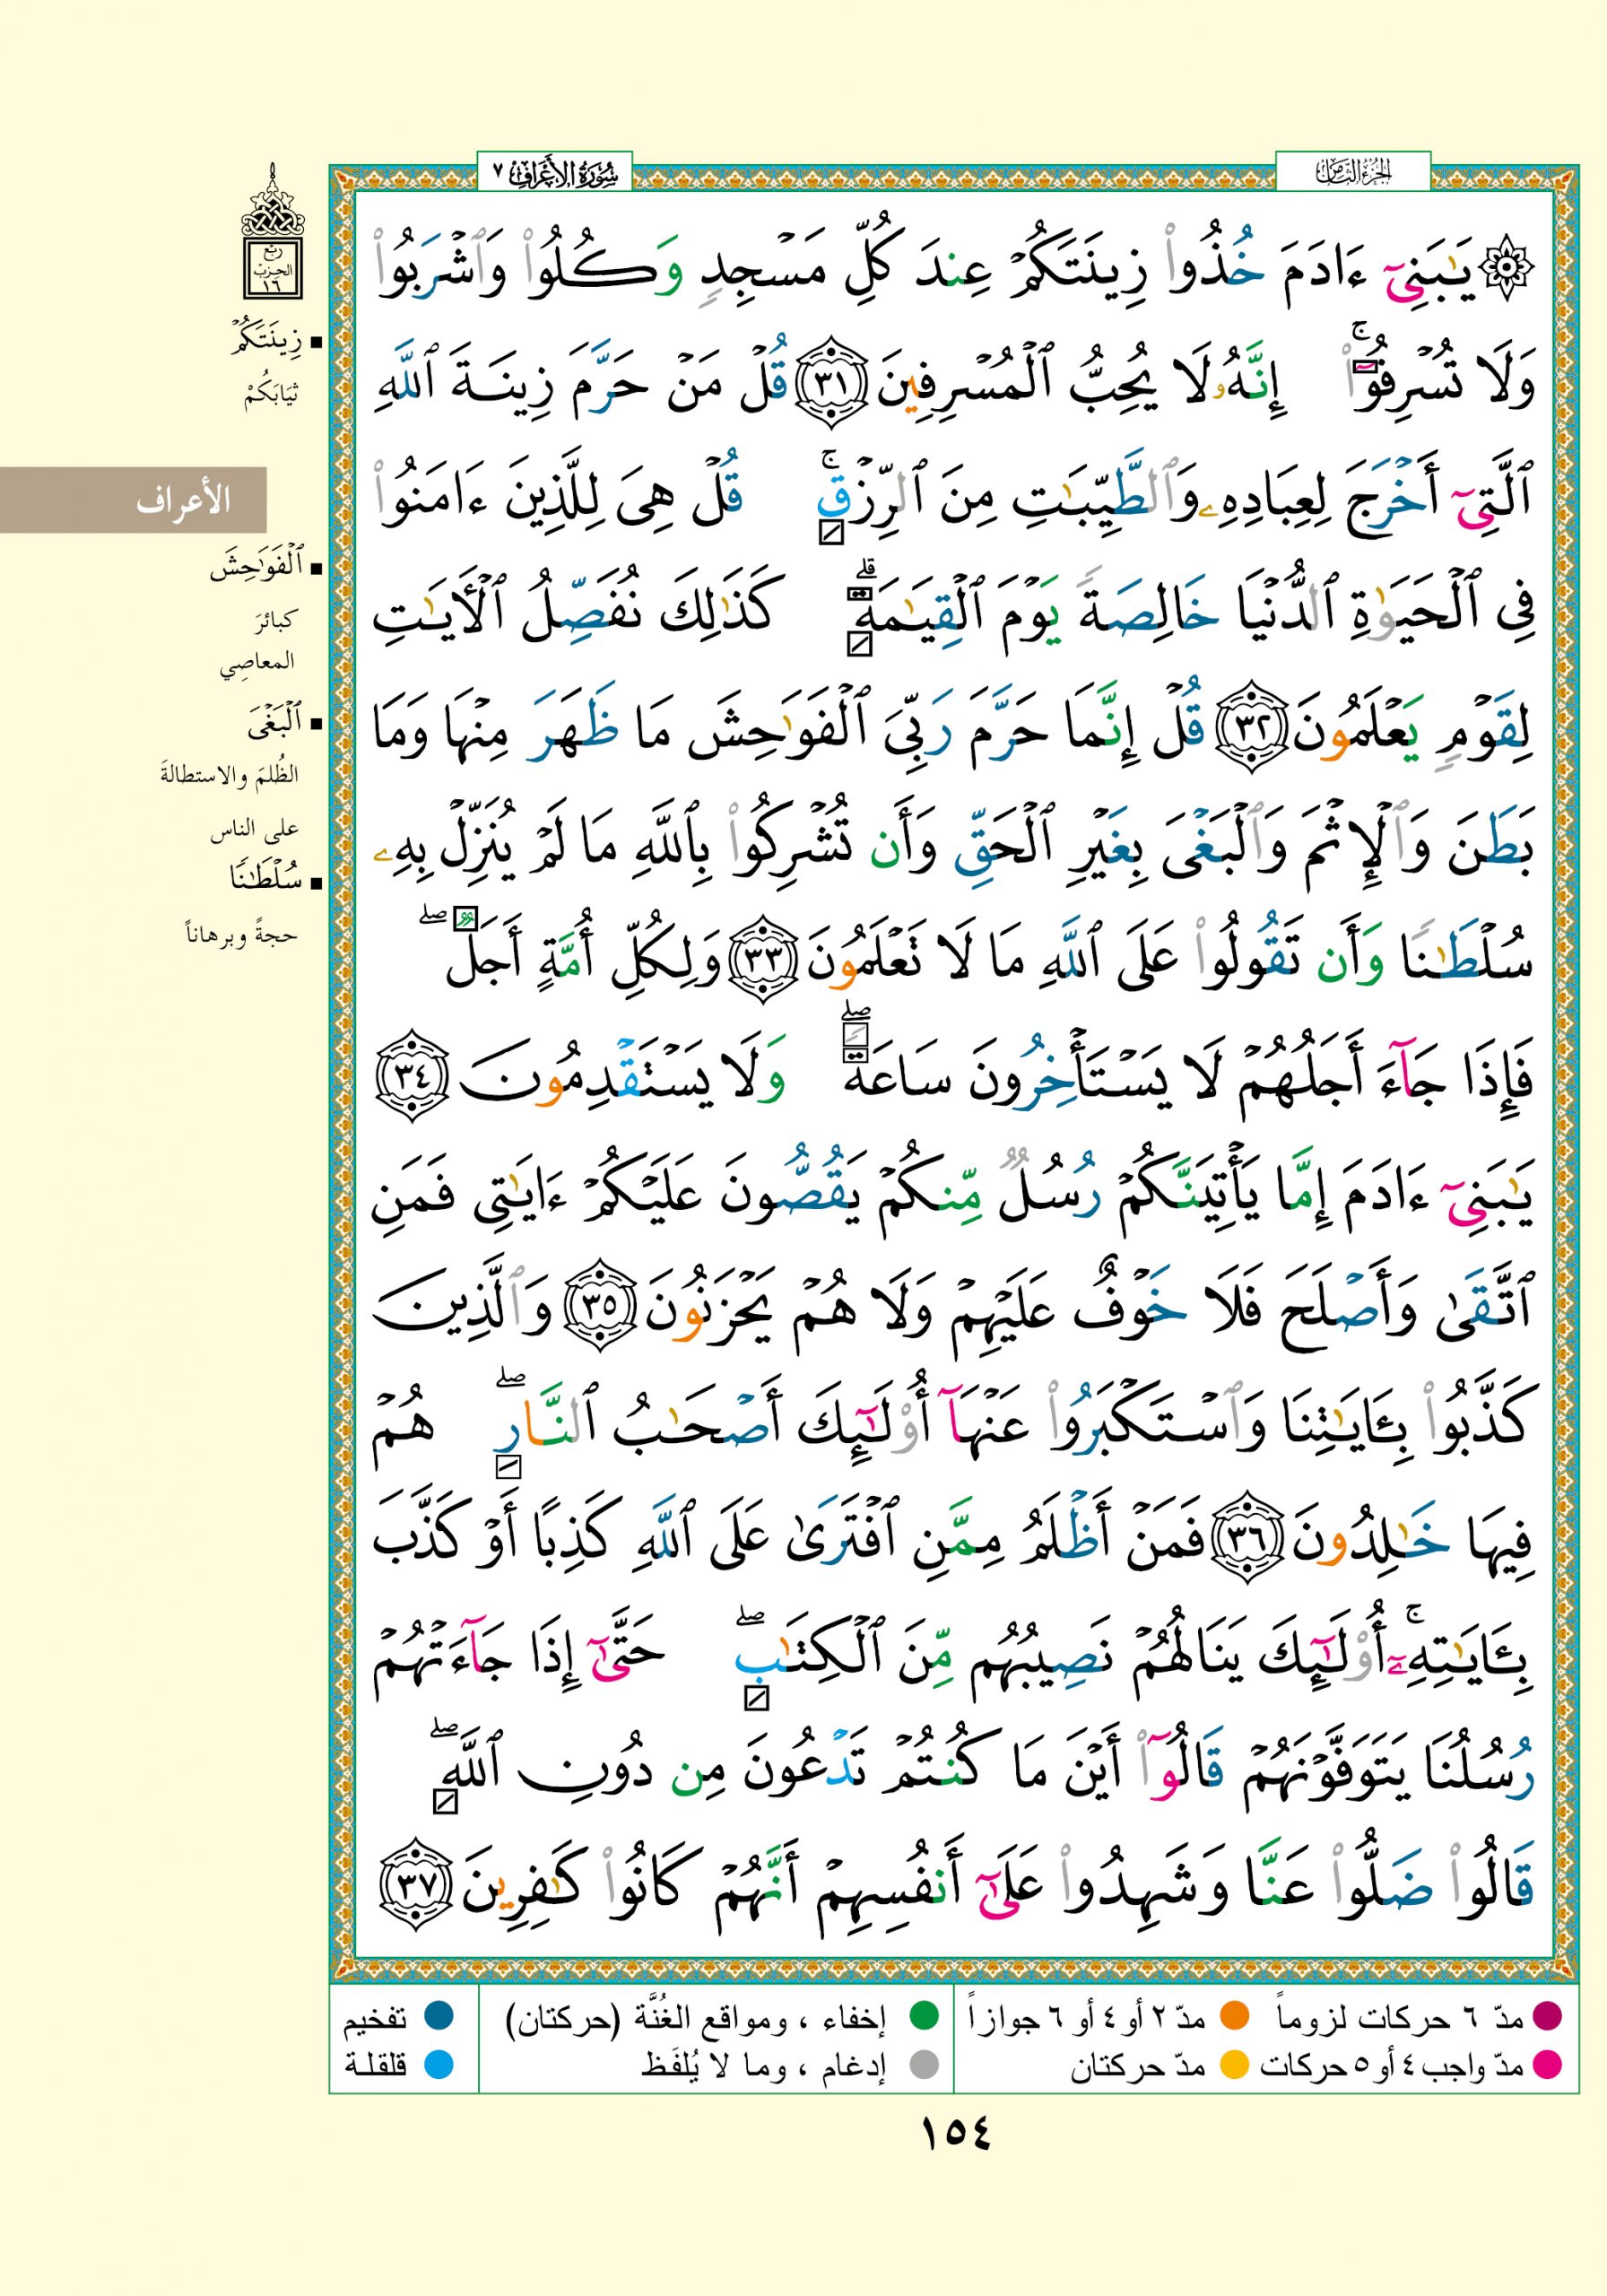 الجزء الثامن
سورة الأعراف ٧
۞ يَٰبَنِىٓ ءَادَمَ خُذُوا۟ زِينَتَكُمْ عِندَ كُلِّ مَسْجِدٍ وَكُلُوا۟ وَٱشْرَبُوا۟
وَلَا تُسْرِفُوٓا۟ ۚ إِنَّهُۥ لَا يُحِبُّ ٱلْمُسْرِفِينَ ٣١ قُلْ مَنْ حَرَّمَ زِينَةَ ٱللَّهِ
ٱلَّتِىٓ أَخْرَجَ لِعِبَادِهِۦ وَٱلطَّيِّبَٰتِ مِنَ ٱلرِّزْقِ ۚ قُلْ هِىَ لِلَّذِينَ ءَامَنُوا۟
فِى ٱلْحَيَوٰةِ ٱلدُّنْيَا خَالِصَةً يَوْمَ ٱلْقِيَٰمَةِ ۗ كَذَٰلِكَ نُفَصِّلُ ٱلْءَايَٰتِ
لِقَوْمٍ يَعْلَمُونَ ٣٢ قُلْ إِنَّمَا حَرَّمَ رَبِّىَ ٱلْفَوَٰحِشَ مَا ظَهَرَ مِنْهَا وَمَا
بَطَنَ وَٱلْإِثْمَ وَٱلْبَغْىَ بِغَيْرِ ٱلْحَقِّ وَأَن تُشْرِكُوا۟ بِٱللَّهِ مَا لَمْ يُنَزِّلْ بِهِۦ
سُلْطَٰنًا وَأَن تَقُولُوا۟ عَلَى ٱللَّهِ مَا لَا تَعْلَمُونَ ٣٣ وَلِكُلِّ أُمَّةٍ أَجَلٌ ۖ
فَإِذَا جَآءَ أَجَلُهُمْ لَا يَسْتَأْخِرُونَ سَاعَةً ۖ وَلَا يَسْتَقْدِمُونَ ٣٤
يَٰبَنِىٓ ءَادَمَ إِمَّا يَأْتِيَنَّكُمْ رُسُلٌ مِّنكُمْ يَقُصُّونَ عَلَيْكُمْ ءَايَٰتِى فَمَنِ
ٱتَّقَىٰ وَأَصْلَحَ فَلَا خَوْفٌ عَلَيْهِمْ وَلَا هُمْ يَحْزَنُونَ ٣٥ وَٱلَّذِينَ
كَذَّبُوا۟ بِـَٔايَٰتِنَا وَٱسْتَكْبَرُوا۟ عَنْهَآ أُو۟لَٰٓئِكَ أَصْحَٰبُ ٱلنَّارِ ۖ هُمْ
فِيهَا خَٰلِدُونَ ٣٦ فَمَنْ أَظْلَمُ مِمَّنِ ٱفْتَرَىٰ عَلَى ٱللَّهِ كَذِبًا أَوْ كَذَّبَ
بِـَٔايَٰتِهِۦٓ ۚ أُو۟لَٰٓئِكَ يَنَالُهُمْ نَصِيبُهُم مِّنَ ٱلْكِتَٰبِ ۖ حَتَّىٰٓ إِذَا جَآءَتْهُمْ
رُسُلُنَا يَتَوَفَّوْنَهُمْ قَالُوٓا۟ أَيْنَ مَا كُنتُمْ تَدْعُونَ مِن دُونِ ٱللَّهِ ۖ
قَالُوا۟ ضَلُّوا۟ عَنَّا وَشَهِدُوا۟ عَلَىٰٓ أَنفُسِهِمْ أَنَّهُمْ كَانُوا۟ كَٰفِرِينَ ٣٧
ربع
الحزب
١٦
زِينَتَكُمْ
ثيَابَكُمْ
الأعراف
ٱلْفَوَٰحِشَ
كبائرَ
المعاصِي
ٱلْبَغْىَ
الظُلمَ والاستطالةَ
على الناس
سُلْطَٰنًا
حجةً وبرهاناً
مدّ ٦ حركات لزوماً
مدّ ٢ أو ٤ أو ٦ جوازاً
إخفاء ، ومواقع الغُنَّة (حركتان)
تفخيم
مدّ واجب ٤ أو ٥ حركات
مدّ حركتان
إدغام ، وما لا يُلفَظ
قلقلة
١٥٤